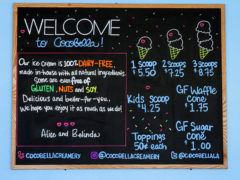 WELCOME
to Cocobella!
Our ice cream is 100% DAIRY-FREE,
made in-house with all natural ingredients.
Some are even free of
GLUTEN, NUTS and SOY.
Delicious and better-for-you..
We hope you enjoy it as much as we do!
Alice and Belinda
1 scoop 2 scoops 3 scoops
$5.50 $7.25 $8.75
Kids scoop
$4.25
GF Waffle
cone
$1.75
Toppings
50¢ each
GF Sugar
cone
$1.00
COCOBELLACREAMERY @COCOBELLACREAMERY @COCOBELLALA